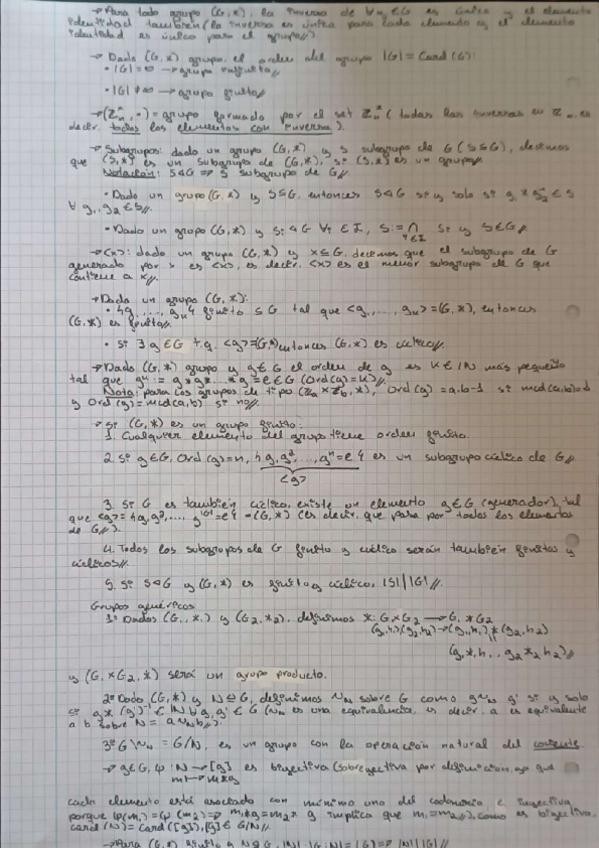 → Para todo grupo (G,*), la inversa de ∀g∈G es única y el elemento
identidad también (la inversa es única para cada elemento y el elemento
identidad es único para el grupo)//
→ Dado (G,*) grupo, el orden del grupo |G| = Card(G):
• |G| = ∞ → grupo infinito//
• |G| ≠ ∞ → grupo finito//
→ = grupo formado por el set (todas las inversas en es
decir, todos los elementos con inversa).
→ Subgrupos: dado un grupo (G,*) y S subgrupo de G (S⊆G), decimos
que (S,*) es un subgrupo de (G,*), si (S,*) es un grupo//
Notación: S◁G ⇒ S subgrupo de G//
• Dado un grupo (G,*) y S⊆G, entonces S◁G si y solo si g₁*g₂⁻¹∈S
∀ g₁,g₂∈S//
• Dado un grupo (G,*) y Si◁G ∀i∈I, S:=∩ Si y S∈G//
→ <x>: dado un grupo (G,*) y x⊆G, decimos que el subgrupo de G
generado por x es <x>, es decir, <x> es el menor subgrupo de G que
contiene a x//
→ Dado un grupo (G,*):
• {g₁,...,gₙ} finito ⊆G tal que <g₁,...,gₙ>=(G,*), entonces
(G,*) es finito//
• Si ∃g∈G t.q. <g>=(G,*) entonces (G,*) es cíclico//
→ Dado (G,*) grupo y g∈G el orden de g es K∈ℕ más pequeño
tal que gᴷ := g*g*...*g=e∈G (Ord(g)=K)//
Nota: para los grupos de tipo (ℤa×ℤb,*), Ord(g)=a·b-1 si mcd(a,b)=1
y Ord(g)=mcd(a,b) si no//
→ Si (G,*) es un grupo finito:
1. Cualquier elemento del grupo tiene orden finito.
2. Si g∈G, Ord(g)=n, {g,g²,...,gⁿ=e} es un subgrupo cíclico de G//
<g>
3. Si G es también cíclico, existe un elemento g∈G (generador), tal
que <g>={g,g²,...,g|G|=e}=(G,*) (es decir, que pasa por todos los elementos
de G//).
4. Todos los subgrupos de G finito y cíclico serán también finitos y
cíclicos//
5. Si S◁G y (G,*) es finito y cíclico, |S| | |G|//
Grupos genéricos
1º Dados (G₁,*₁) y (G₂,*₂), definimos *: G₁×G₂ → G₁*G₂
(g₁,h₁)(g₂,h₂)→(g₁,h₁)*(g₂,h₂)
(g₁*₁h₁, g₂*₂h₂)//
y (G₁×G₂,*) será un grupo producto.
2º Dado (G,*) y N⊴G, definimos ~N sobre G como g~N g' si y solo
si g*(g')⁻¹∈N ∀g,g'∈G (~N es una equivalencia, es decir, a es equivalente
a b sobre N = a~N b//).
3º G\~N = G/N, es un grupo con la operación natural del cociente.
→ g∈G, φ:N→[g] es biyectiva (sobreyectiva por definición, ya que
m→m*g
cada elemento está asociado con mínimo uno del codominio e inyectiva
porque φ(m₁)=φ(m₂)⇒m₁*g=m₂*g implica que m₁=m₂//), como es biyectiva,
card(N)=Card([g]),[g]∈G/N//
→ Para (G,*) finito y N⊴G, |N|·|G:N|=|G|⇒|N| | |G|//